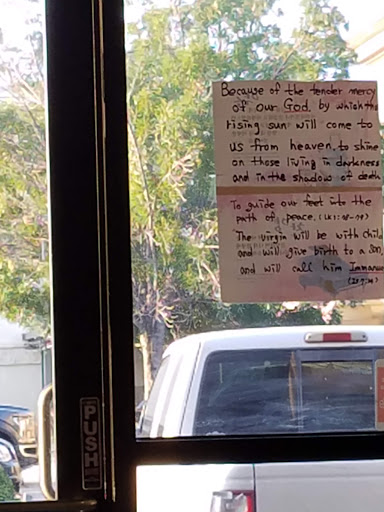 Because of the tender mercy
of our God, by which the
rising sun will come to
us from heaven, to shine
on those living in darkness
and in the shadow of death
To guide our feet into the
path of peace. (LK1:78-79)
The virgin will be with child
and will give birth to a son,
and will call him Immanu
(Is 7:14)
PUSH